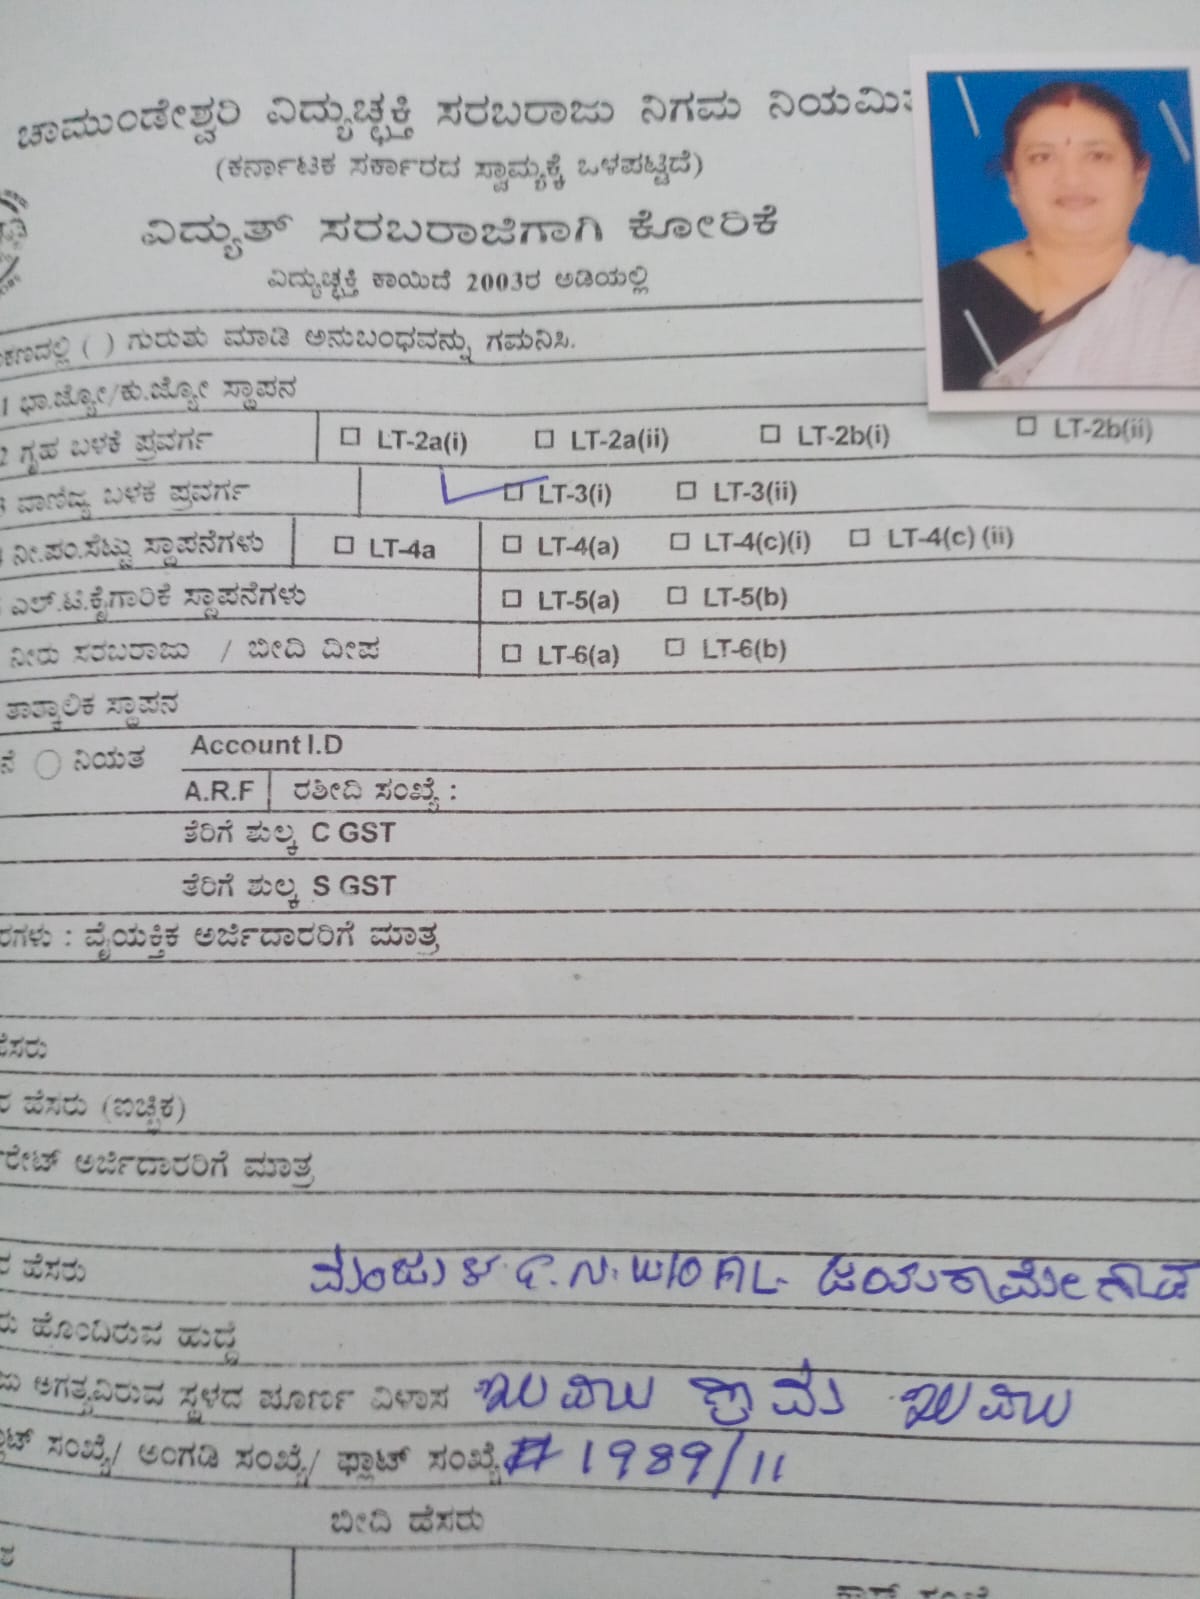 ಚಾಮುಂಡೇಶ್ವರಿ ವಿದ್ಯುಚ್ಛಕ್ತಿ ಸರಬರಾಜು ನಿಗಮ ನಿಯಮಿತ
(ಕರ್ನಾಟಕ ಸರ್ಕಾರದ ಸ್ವಾಮ್ಯಕ್ಕೆ ಒಳಪಟ್ಟಿದೆ)
ವಿದ್ಯುತ್ ಸರಬರಾಜಿಗಾಗಿ ಕೋರಿಕೆ
ವಿದ್ಯುಚ್ಛಕ್ತಿ ಕಾಯಿದೆ 2003ರ ಅಡಿಯಲ್ಲಿ
( ) ಗುರುತು ಮಾಡಿ ಅನುಬಂಧವನ್ನು ಗಮನಿಸಿ.
1 ಭಾ.ಜ್ಯೋ/ಕು.ಜ್ಯೋ ಸ್ಥಾಪನ
2 ಗೃಹ ಬಳಕೆ ಪ್ರವರ್ಗ LT-2a(i) LT-2a(ii) LT-2b(i) LT-2b(ii)
ವಾಣಿಜ್ಯ ಬಳಕೆ ಪ್ರವರ್ಗ LT-3(i) LT-3(ii)
ನೀ.ಪಂ.ಸೆಟ್ಟು ಸ್ಥಾಪನೆಗಳು LT-4a LT-4(a) LT-4(c)(i) LT-4(c) (ii)
ಎಲ್.ಟಿ.ಕೈಗಾರಿಕೆ ಸ್ಥಾಪನೆಗಳು LT-5(a) LT-5(b)
ನೀರು ಸರಬರಾಜು / ಬೀದಿ ದೀಪ LT-6(a) LT-6(b)
ತಾತ್ಕಾಲಿಕ ಸ್ಥಾಪನ
ನಿಯತ Account I.D
A.R.F ರಶೀದಿ ಸಂಖ್ಯೆ :
ತೆರಿಗೆ ಶುಲ್ಕ C GST
ತೆರಿಗೆ ಶುಲ್ಕ S GST
: ವೈಯಕ್ತಿಕ ಅರ್ಜಿದಾರರಿಗೆ ಮಾತ್ರ
ಹೆಸರು
ಹೆಸರು (ಐಚ್ಛಿಕ)
ಅರ್ಜಿದಾರರಿಗೆ ಮಾತ್ರ
ಹೆಸರು ಮಂಜುಳ W/O
ಹೊಂದಿರುವ ಹುದ್ದೆ
ಅಗತ್ಯವಿರುವ ಸ್ಥಳದ ಪೂರ್ಣ ವಿಳಾಸ
ಸಂಖ್ಯೆ/ ಅಂಗಡಿ ಸಂಖ್ಯೆ/ ಫ್ಲಾಟ್ ಸಂಖ್ಯೆ # 1989/11
ಬೀದಿ ಹೆಸರು